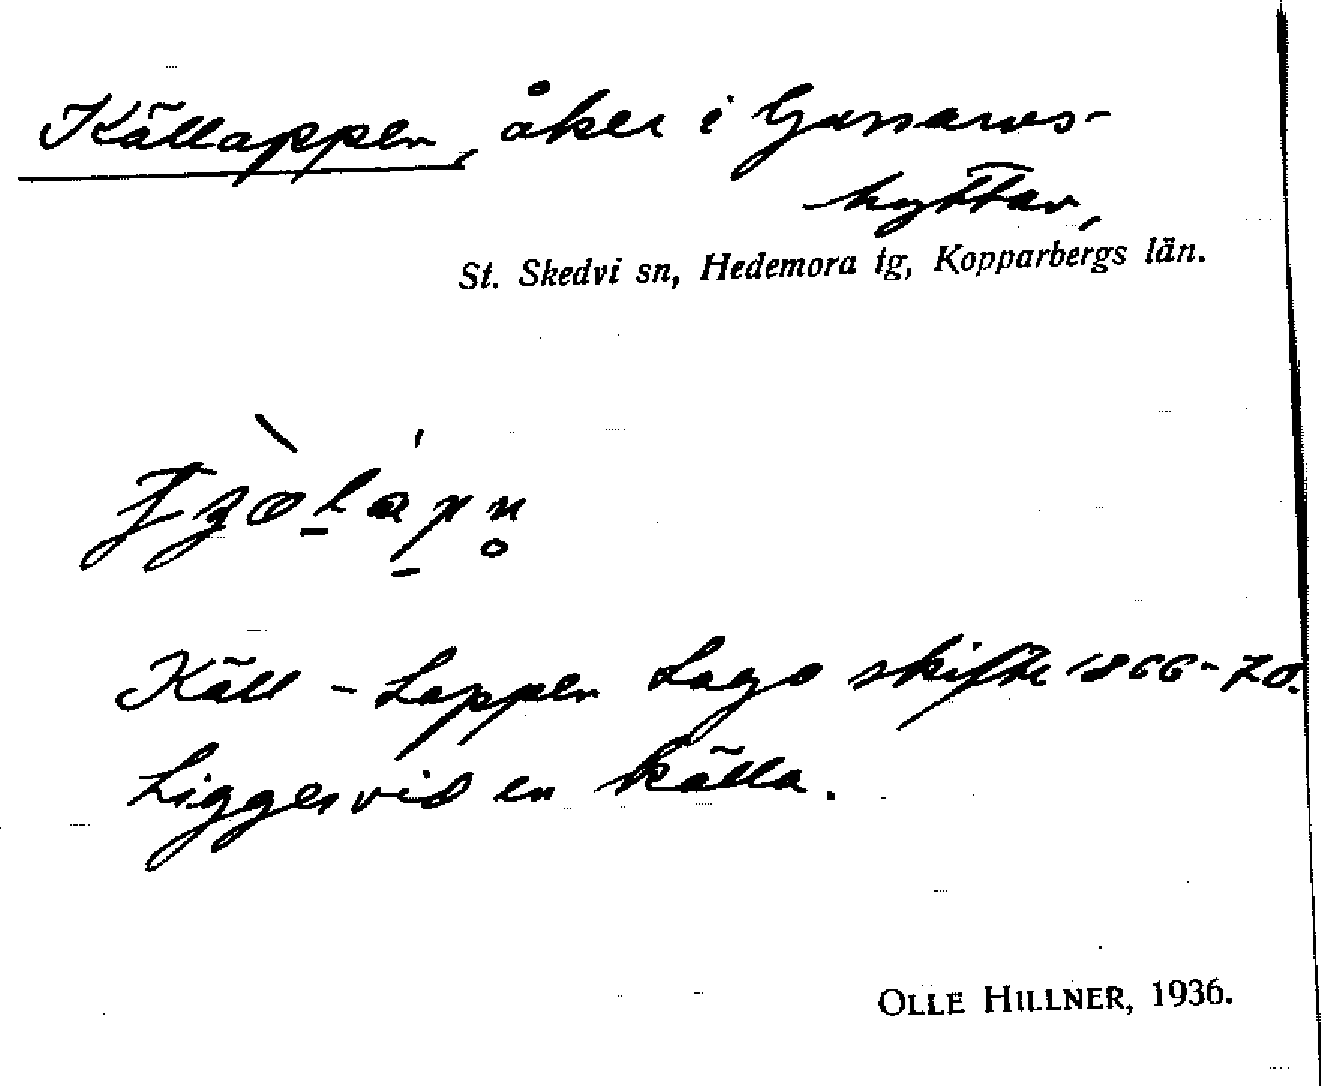 Källappen, åker i Gussarvs-
hyttan,
St. Skedvi sn, Hedemora tg, Kopparbergs län.
Käll-Lappen Laga skifte 1866-70.
Ligger vid en källa.
OLLE HILLNER, 1936.